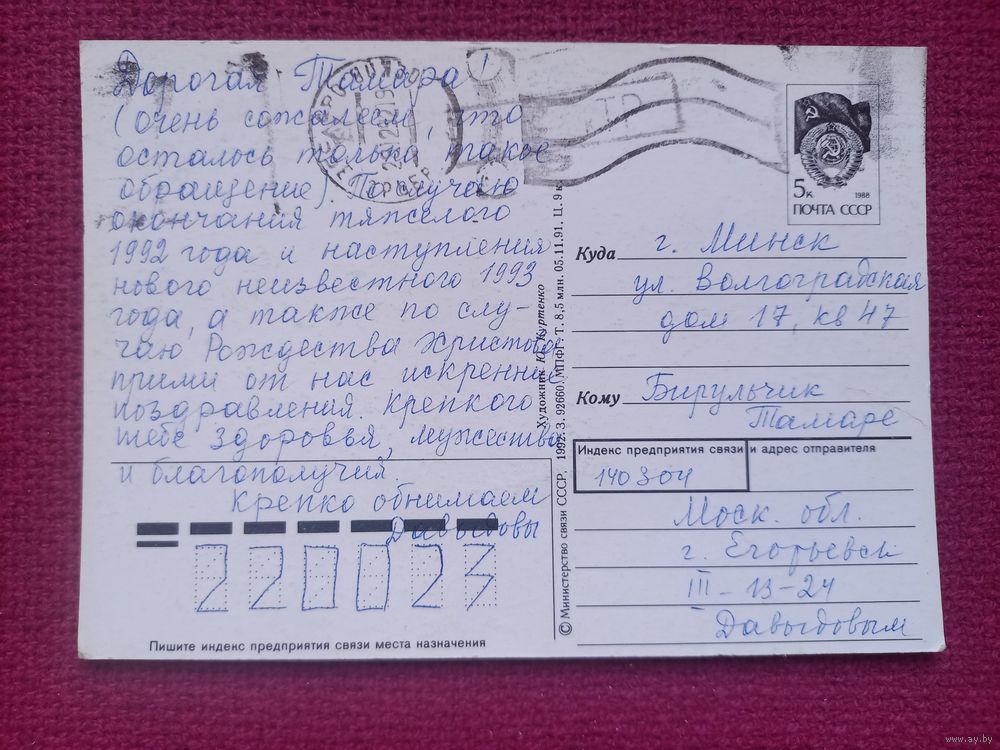 Дорогая Тамара!
(очень сожалеем, что
осталось только такое
обращение). По случаю
окончания тяжелого
1992 года и наступления
нового неизвестного 1993
года, а также по слу-
чаю Рождества Христова
прими от нас искренние
поздравления. Крепкого
тебе здоровья, мужества
и благополучия.
Крепко обнимаем
Давыдовы
220023
Пишите индекс предприятия связи места назначения
© Министерство связи СССР. 1992. З. 92660. МПФГ. Т. 8,5 млн. 05.11.91. Ц. 9 к.
Художник Ю. Куртенко
5к
1988
ПОЧТА СССР
Куда г. Минск
ул. Волгоградская
дом 17, кв 47
Кому Бирульчик
Тамаре
Индекс предприятия связи и адрес отправителя
140304
Моск. обл.
г. Егорьевск
III - 13 - 24
Давыдовым
www.ay.by